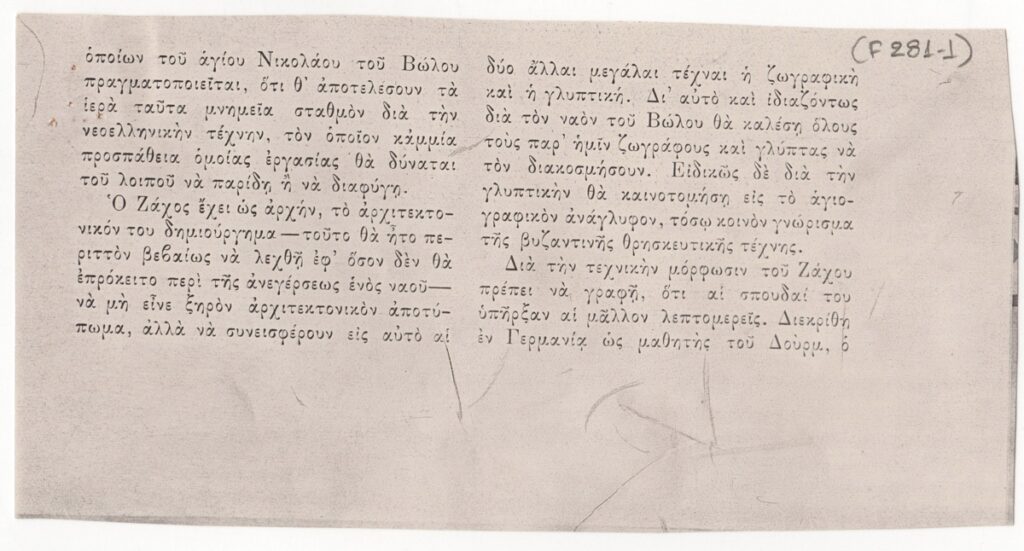 (F 281-1)
ὁποίων τοῦ ἁγίου Νικολάου τοῦ Βώλου
πραγματοποιεῖται, ὅτι θ' ἀποτελέσουν τὰ
ἱερὰ ταῦτα μνημεῖα σταθμὸν διὰ τὴν
νεοελληνικὴν τέχνην, τὸν ὁποῖον κάμμία
προσπάθεια ὁμοίας ἐργασίας θὰ δύναται
τοῦ λοιποῦ νὰ παρίδῃ ἢ νὰ διαφύγῃ.
Ὁ Ζάχος ἔχει ὡς ἀρχήν, τὸ ἀρχιτεκτο-
νικόν του δημιούργημα—τοῦτο θὰ ἦτο πε-
ριττὸν βεβαίως νὰ λεχθῇ ἐφ' ὅσον δὲν θὰ
ἐπρόκειτο περὶ τῆς ἀνεγέρσεως ἑνὸς ναοῦ—
νὰ μὴ εἶνε ξηρὸν ἀρχιτεκτονικὸν ἀποτύ-
πωμα, ἀλλὰ νὰ συνεισφέρουν εἰς αὐτὸ αἱ
δύο ἄλλαι μεγάλαι τέχναι ἡ ζωγραφικὴ
καὶ ἡ γλυπτική. Δι' αὐτὸ καὶ ἰδιαζόντως
διὰ τὸν ναὸν τοῦ Βώλου θὰ καλέσῃ ὅλους
τοὺς παρ' ἡμῖν ζωγράφους καὶ γλύπτας νὰ
τὸν διακοσμήσουν. Εἰδικῶς δὲ διὰ τὴν
γλυπτικὴν θὰ καινοτομήσῃ εἰς τὸ ἁγιο-
γραφικὸν ἀνάγλυφον, τόσῳ κοινὸν γνώρισμα
τῆς βυζαντινῆς θρησκευτικῆς τέχνης.
Διὰ τὴν τεχνικὴν μόρφωσιν τοῦ Ζάχου
πρέπει νὰ γραφῇ, ὅτι αἱ σπουδαί του
ὑπῆρξαν αἱ μᾶλλον λεπτομερεῖς. Διεκρίθη
ἐν Γερμανίᾳ ὡς μαθητὴς τοῦ Δούρμ, ὁ